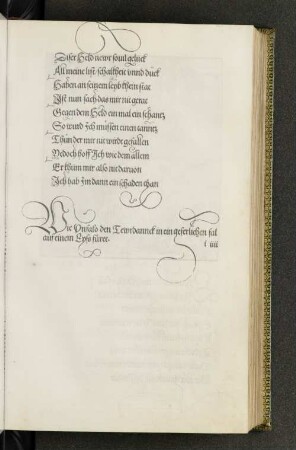 Diser Held newr souil gelück
All meine list schalkheit vnnd dück
Haben an seinem leyb kein stat
Ist nun sach das mir nit gerat
Gegen dem Held ein mal ein schantz
So wird Ich müssen einen
Thun der mir nit wirdt gefallen
Yedoch hoff Ich wie dem allem
Er kum mir also nit daruon
Ich hab Im dann ein schaden than
Wie Vnfalo den Tewrdannck in ein geferlichen fal
auf einem Eyß füret.
l iiii